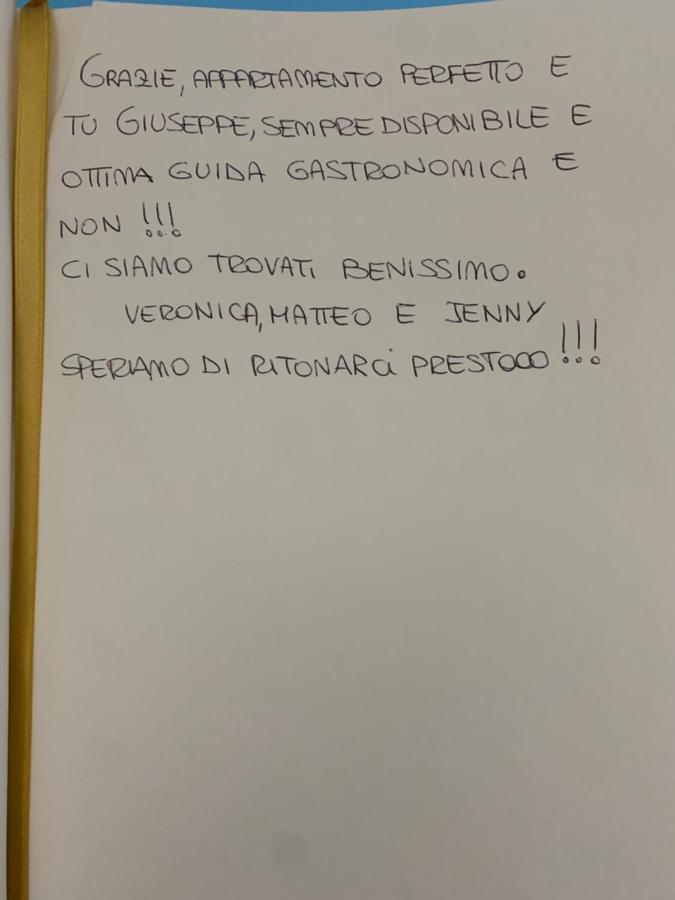 GRAZIE, APPARTAMENTO PERFETTO E
TU GIUSEPPE, SEMPRE DISPONIBILE E
OTTIMA GUIDA GASTRONOMICA E
NON !!!
CI SIAMO TROVATI BENISSIMO.
VERONICA, MATTEO E JENNY
SPERIAMO DI RITONARCi PRESTOOO !!!